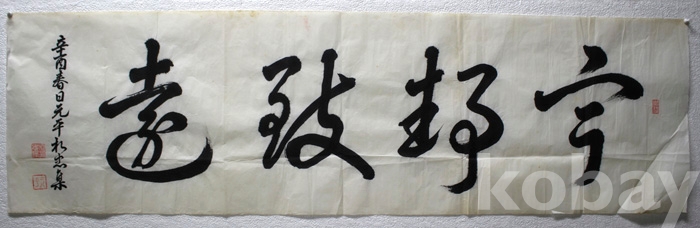 宁靜致遠
辛酉春日元平朴忠集
kobay